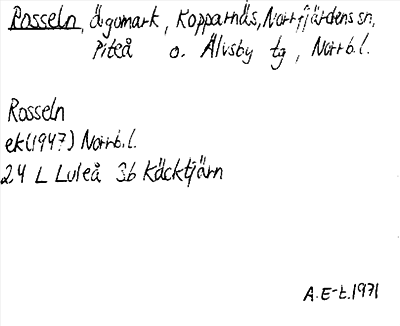 Rosseln, ägomark, Kopparnäs, Norrfjärdens sn,
Piteå o. Älvsby tg, Norrb.l.
Rosseln
ek(1947) Norrb.l.
24 L Luleå 3b Käcktjärn
A.E-t.1971